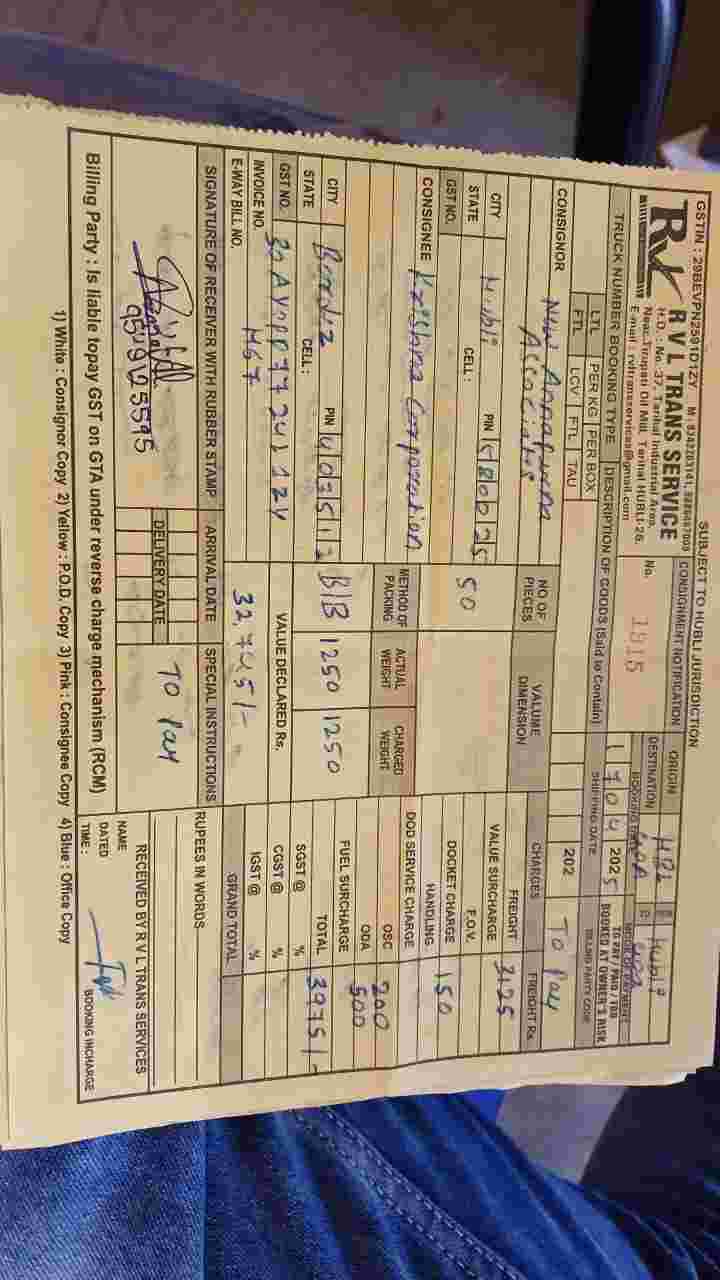 GSTIN : 29BEVPN2591D1ZY M : 9342203141,
SUBJECT TO HUBLI JURISDICTION
R V L TRANS SERVICE
H.D. : No. 37, Tarihal Industrial Area,
Near, Tirupati Oil Mill, Tarihal HUBLI-26.
E-mail : rvltransservices@gmail.com
CONSIGNMENT NOTIFICATION
No. 1915
ORIGIN HBL Hubli
DESTINATION GOA
BOOKING DATE
17 04 2025
MODE OF PAYMENT
TO PAY / PAID / TBB
BOOKED AT OWNER'S RISK
TRUCK NUMBER BOOKING TYPE DESCRIPTION OF GOODS (Said to Contain)
SHIPPING DATE
202
BILLING PARTY CODE
LTL PER KG PER BOX
FTL LCV FTL TAU
CONSIGNOR New Annapurna
Associates
CITY Hubli PIN 580025
STATE CELL :
GST NO.
NO OF PIECES
50
VALUME DIMENSION
CONSIGNEE Krishna Corporation
METHOD OF PACKING
ACTUAL WEIGHT
CHARGED WEIGHT
B/B 1250 1250
CITY Bardez PIN 403512
STATE CELL :
GST NO.
INVOICE NO. 467
E-WAY BILL NO.
VALUE DECLARED Rs.
32,745/-
CHARGES FREIGHT Rs.
To Pay
FREIGHT 3125
VALUE SURCHARGE
F.O.V.
DOCKET CHARGE 150
HANDLING
DOD SERVICE CHARGE
OSC 200
ODA 500
FUEL SURCHARGE
TOTAL 3975/-
SGST @ %
CGST @ %
IGST @ %
GRAND TOTAL
SIGNATURE OF RECEIVER WITH RUBBER STAMP ARRIVAL DATE SPECIAL INSTRUCTIONS
DELIVERY DATE
To Pay
RUPEES IN WORDS
RECEIVED BY R V L TRANS SERVICES
NAME
DATED
TIME :
BOOKING INCHARGE
Billing Party : Is liable topay GST on GTA under reverse charge mechanism (RCM)
1) White : Consignor Copy 2) Yellow : P.O.D. Copy 3) Pink : Consignee Copy 4) Blue : Office Copy